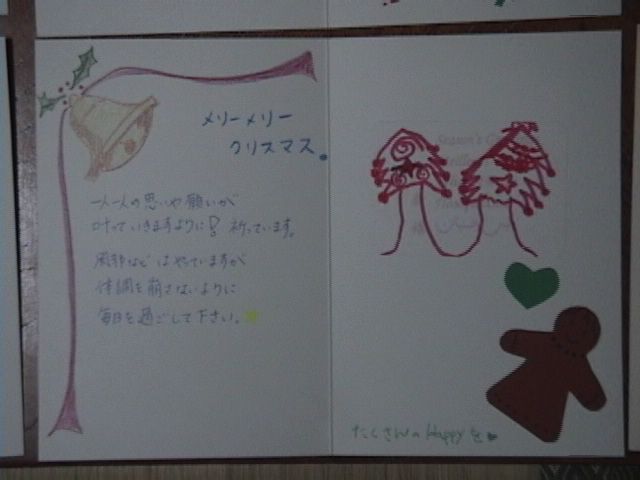 メリーメリー
クリスマス。
一人一人の思いや願いが
叶っていきますように! 祈っています。
風邪などはやっていますが
体調を崩さないように
毎日を過ごして下さい。
Season's
たくさんのHappyを♥